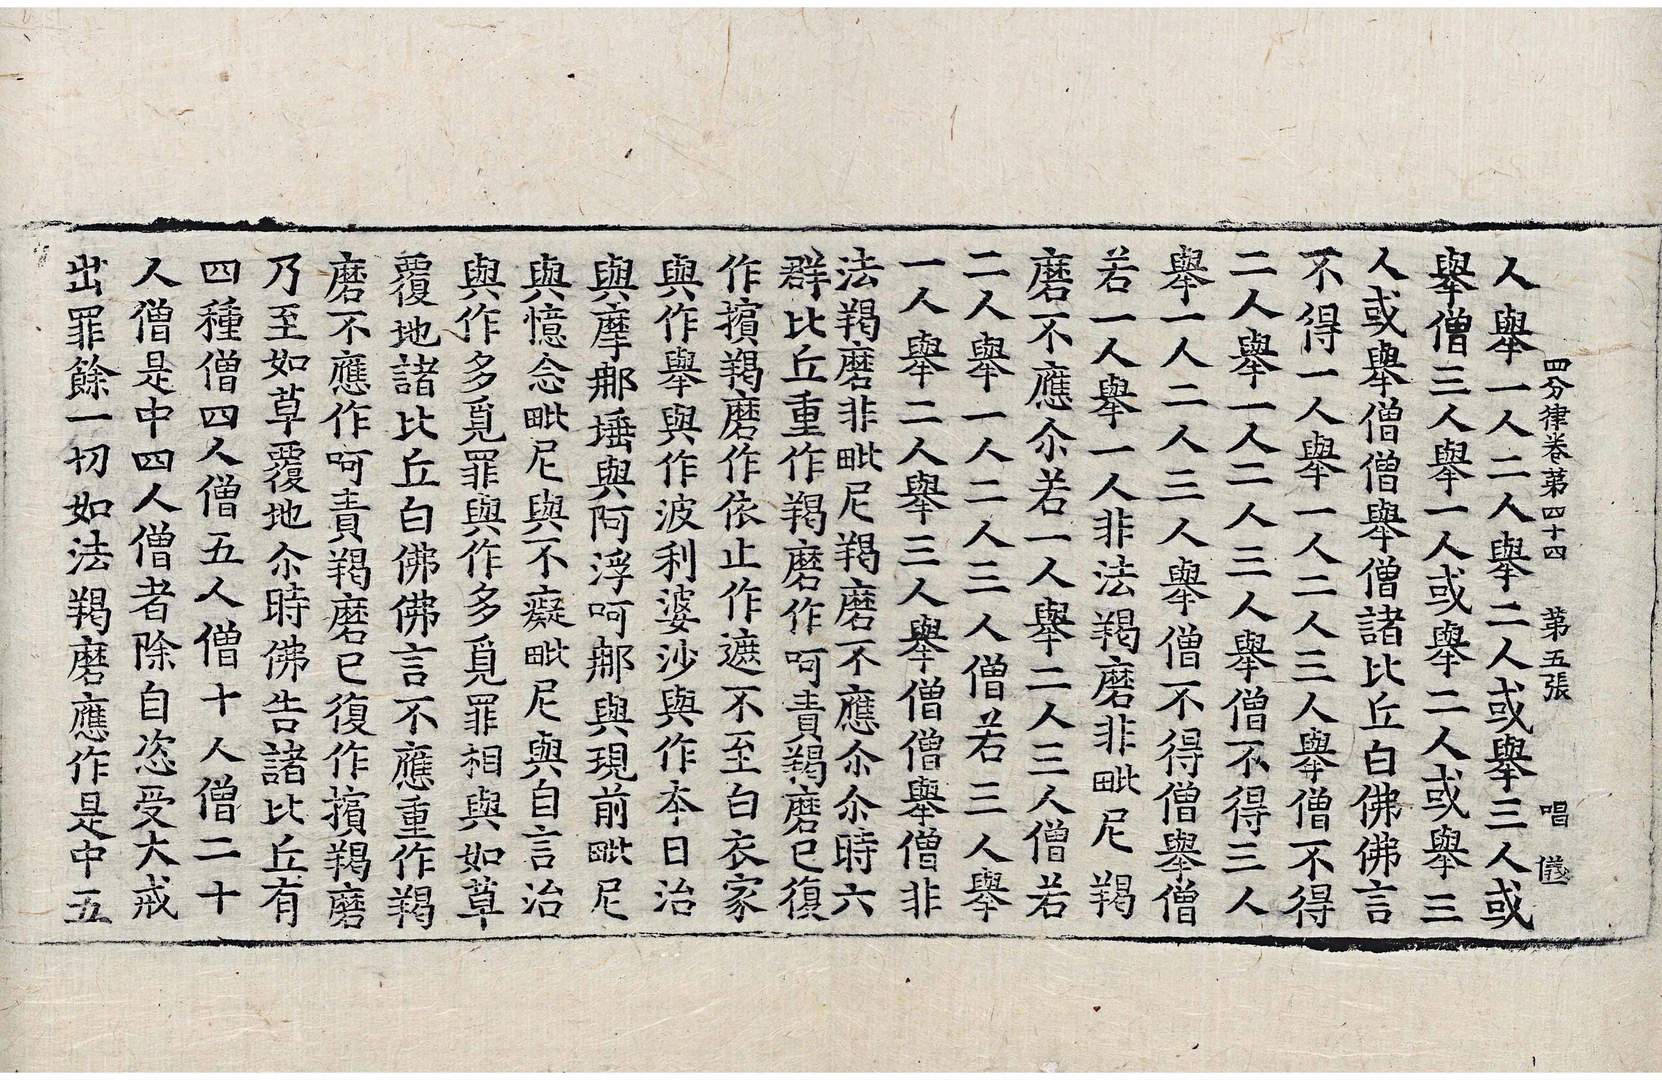 四分律卷第四十四 第五張 唱 儀
人舉一人二人舉二人或舉三人或
舉僧三人舉一人或舉二人或舉三
人或舉僧僧舉僧諸比丘白佛佛言
不得一人舉一人二人三人舉僧不得
二人舉一人二人三人舉僧不得三人
舉一人二人三人舉僧不得僧舉僧
若一人舉一人非法羯磨非毗尼羯
磨不應尒若一人舉二人三人僧若
二人舉一人二人三人僧若三人舉
一人舉二人舉三人舉僧僧舉僧非
法羯磨非毗尼羯磨不應尒尒時六
群比丘重作羯磨作呵責羯磨已復
作擯羯磨作依止作遮不至白衣家
與作舉與作波利婆沙與作本日治
與摩那埵與阿浮呵那與現前毗尼
與憶念毗尼與不癡毗尼與自言治
與作多覓罪與作多覓罪相與如草
覆地諸比丘白佛佛言不應重作羯
磨不應作呵責羯磨已復作擯羯磨
乃至如草覆地尒時佛告諸比丘有
四種僧四人僧五人僧十人僧二十
人僧是中四人僧者除自恣受大戒
出罪餘一切如法羯磨應作是中五